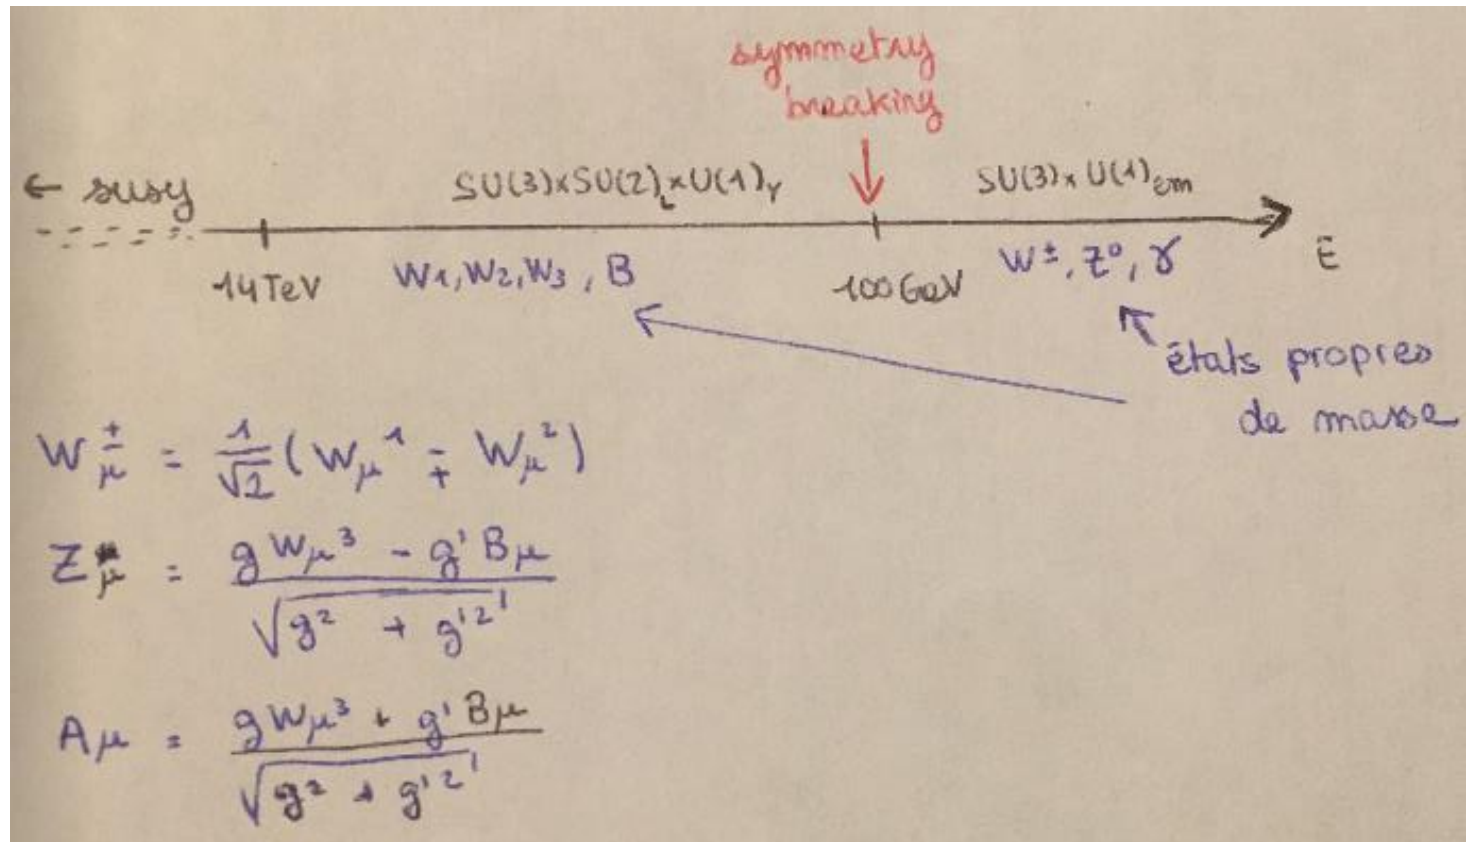 symmetry
breaking
← susy
SU(3)×SU(2)_L×U(1)_Y
SU(3)×U(1)_em
14 TeV
W1, W2, W3, B
100 GeV
W^±, Z^0, γ
E
états propres
de masse
W_μ^± = 1/√2 (W_μ^1 ∓ W_μ^2)
Z_μ = (g W_μ^3 - g' B_μ) / √(g^2 + g'^2)
A_μ = (g W_μ^3 + g' B_μ) / √(g^2 + g'^2)